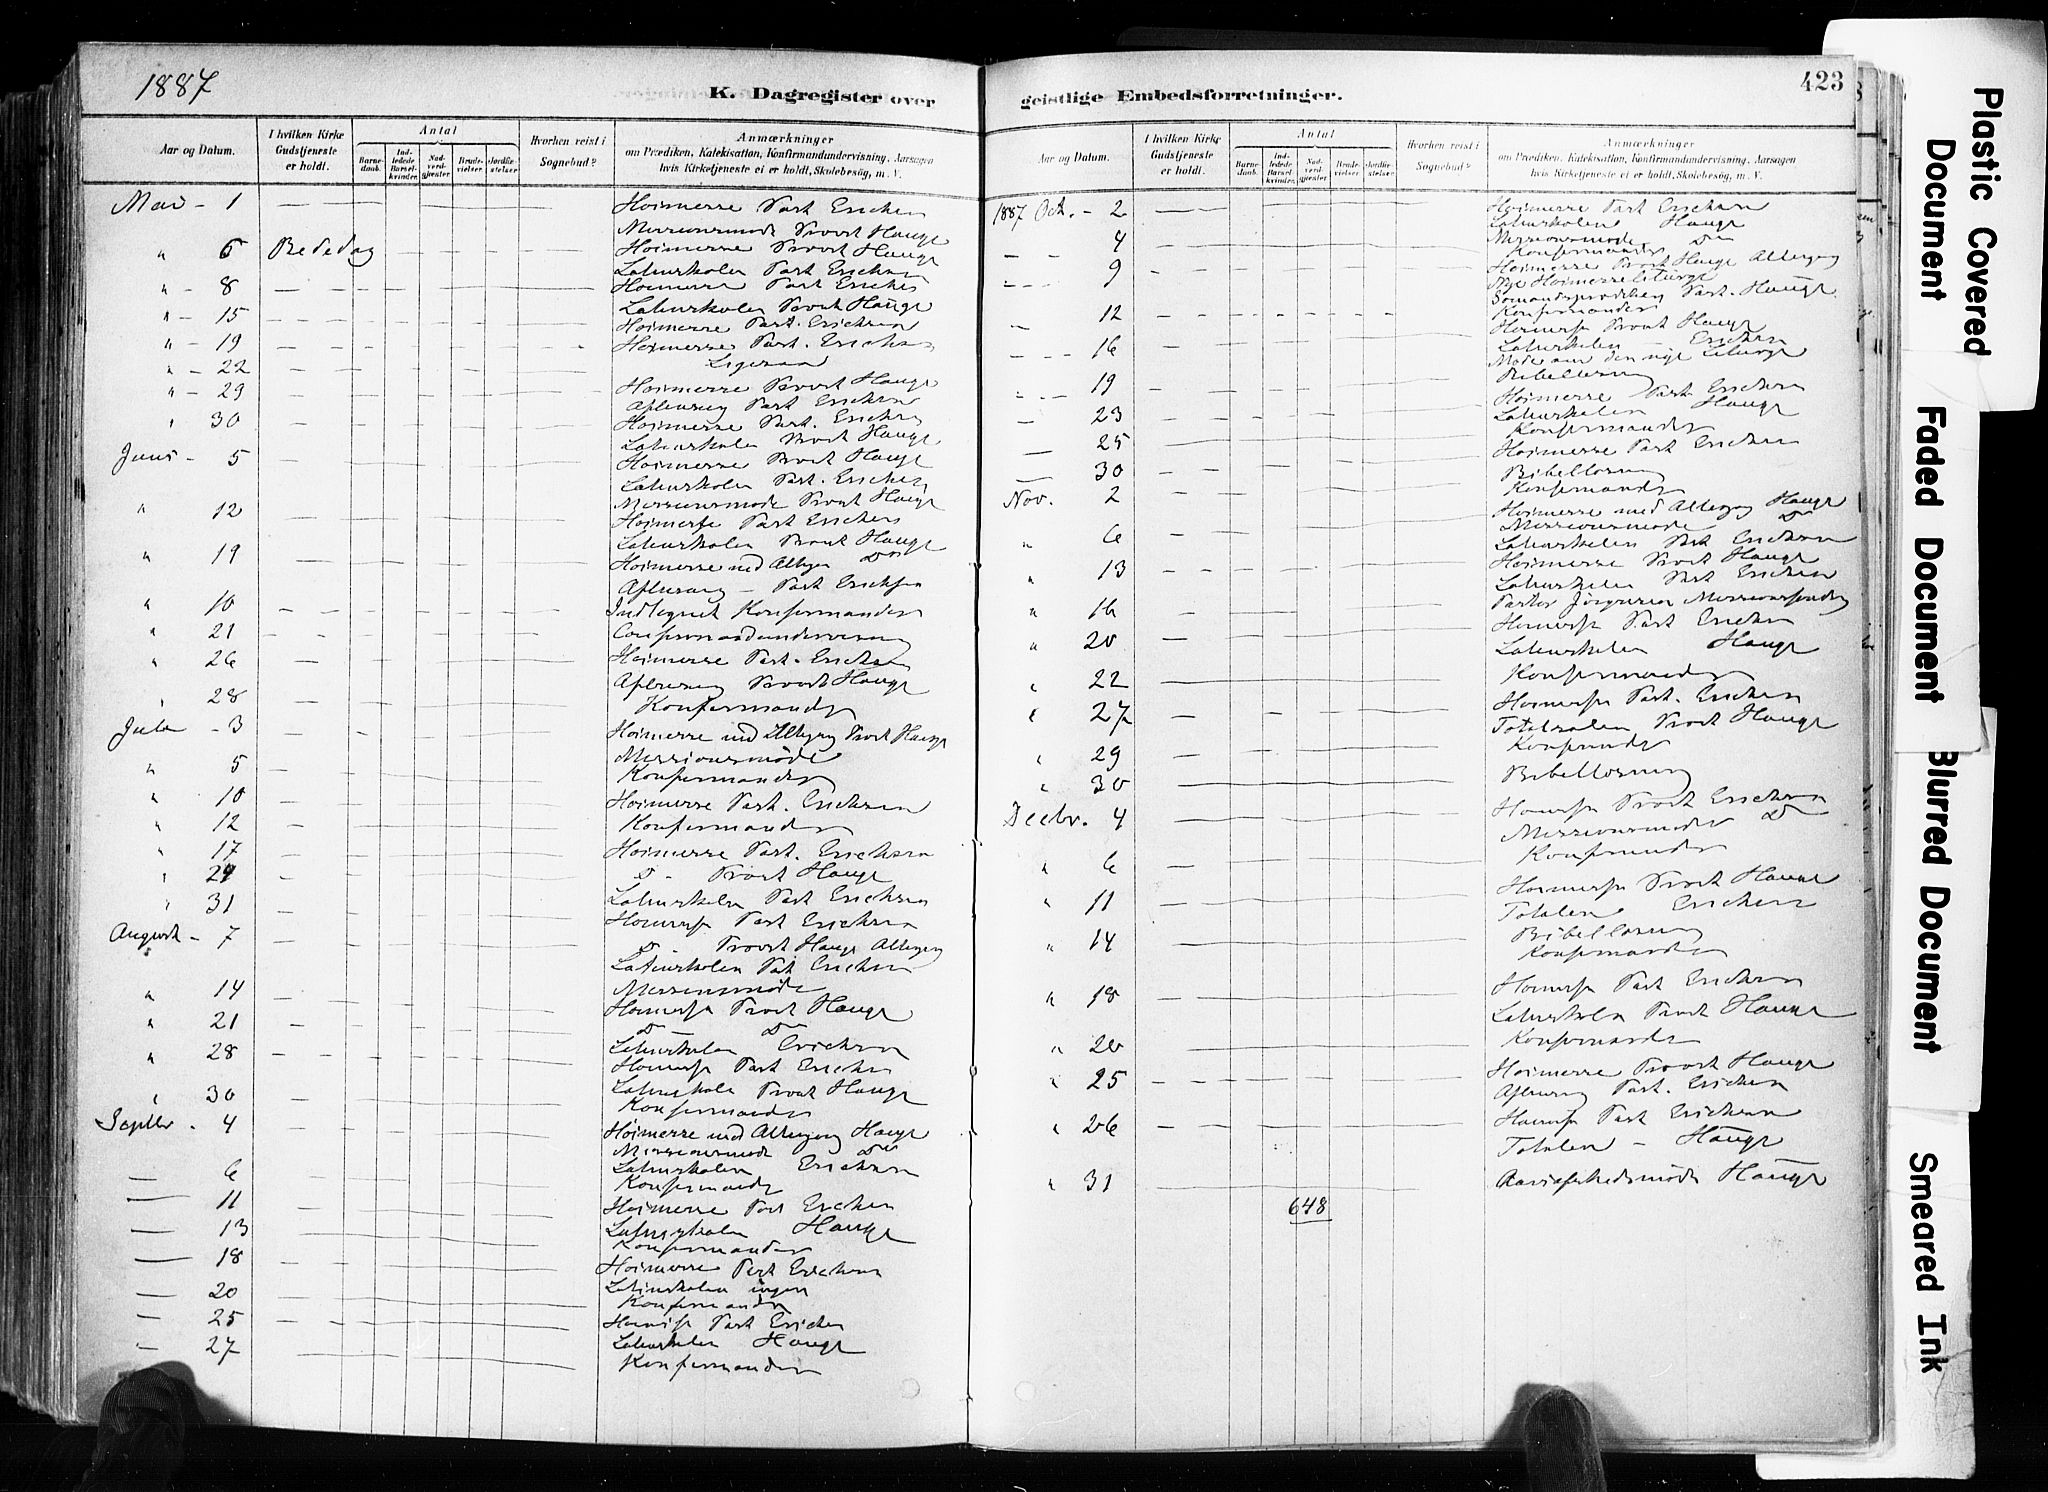 1887
K. Dagregister over
Aar og Datum.
I hvilken Kirke Gudstjeneste er holdt.
Antal
Barne-daab.
Ind-ledede Barsel-kvinder.
Nad-verd-gjester.
Brude-vielser.
Jordfæ-stelser.
Hvorhen reist i Sognebud?
Anmærkninger
om Prædiken, Katekisation, Konfirmandundervisning, Aarsagen
hvis Kirketjeneste ei er holdt, Skolebesøg, m. V.
Mai - 1 Hoimesse Past Erichsen
Missionsmøde Provst Hauge
" 6 Bededag Hoimesse Provst Hauge
Latinskolen Past Erichsen
" - 8 Hoimesse Past Erichsen
Latinskolen Provst Hauge
" - 15 Hoimesse Past. Erichsen
" - 19 Hoimesse Past. Erichsen
" - 22 Ligesaa
" - 29 Hoimesse Provst Hauge
Aftensang Past Erichsen
" 30 Hoimesse Past. Erichsen
Latinskolen Provst Hauge
Juni - 5 Hoimesse Provst Hauge
Latinskolen Past. Erichsen
Missionsmøde Provst Hauge
" 12 Hoimesse Past Erichsen
Latinskolen Provst Hauge
" 19 Hoimesse med Altergang Do
Aftensang - Past Erichsen
" 10 Indtegnet Konfirmander
" 21 Confirmandundervisning
" 26 Hoimesse Past. Erichsen
Aftensang Provst Hauge
" 28 Konfirmander
Juli - 3 Hoimesse med Altergang Provst Hauge
Missionsmøde
" 5 Konfirmander
" 10 Hoimesse Past. Erichsen
" 12 Konfirmander
" 17 Hoimesse Past. Erichsen
" 24 D - Provst Hauge
" 31 Latinskolen Past Erichsen
Hoimesse Past Erichsen
August - 7 D - Provst Hauge Altergang
Latinskolen Past Erichsen
Missionsmøde
" 14 Hoimesse Provst Hauge
" 21 Do - Do
Latinskolen Erichsen
" 28 Hoimesse Past Erichsen
Latinskole Provst Hauge
" 30 Konfirmander
Septbr - 4 Hoimesse med Altergang Hauge
Missionsmøde Do
Latinskolen Erichsen
— 6 Konfirmander
— 11 Hoimesse Past Erichsen
Latinskolen Hauge
— 13 Konfirmander
— 18 Hoimesse Past Erichsen
Latinskolen ingen
— 20 Konfirmander
— 25 Hoimesse Past Erichsen
Latinskolen Hauge
— 27 Konfirmander
geistlige Embedsforretninger.
423
Aar og Datum.
I hvilken Kirke Gudstjeneste er holdt.
Antal
Barne-daab.
Ind-ledede Barsel-kvinder.
Nad-verd-gjester.
Brude-vielser.
Jordfæ-stelser.
Hvorhen reist i Sognebud?
Anmærkninger
om Prædiken, Katekisation, Konfirmandundervisning, Aarsagen
hvis Kirketjeneste ei er holdt, Skolebesøg, m. V.
1887 Oct. - 2 Hoimesse Past Erichsen
Latinskolen Hauge
Missionsmøde Do
4 Konfirmander
9 Hoimesse Provst Hauge Altergang
Nye Hoimesseliturgi
Hauge
12 Konfirmander
16 Hoimesse Provst Hauge
Latinskolen - Erichsen
Møde om den nye Liturgi
19 Bibellæsning
23 Hoimesse Past Erichsen
Latinskolen Hauge
25 Konfirmander
30 Hoimesse Past Erichsen
Nov. 2 Bibellæsning
Konfirmander
" 6 Hoimesse med Altergang Hauge
Missionsmøde Do
Latinskolen Past Erichsen
" 13 Hoimesse Provst Hauge
Latinskolen Past Erichsen
" 16 Pastor Jørgensen
" 20 Hoimesse Past Erichsen
Latinskolen Hauge
" 22 Konfirmander
" 27 Hoimesse Past. Erichsen
Totalsalen Provst Hauge
" 29 Konfirmander
" 30 Bibellæsning
Decbr. 4 Hoimesse Provst Erichsen
Missionsmøde Do
" 6 Konfirmander
" 11 Hoimesse Provst Hauge
Totalen Erichsen
" 14 Bibellæsning
Konfirmander
" 18 Hoimesse Past Erichsen
Latinskolen Provst Hauge
" 20 Konfirmander
" 25 Hoimesse Provst Hauge
Aftensang Past. Erichsen
" 26 Hoimesse Past Erichsen
Totalen - Hauge
" 31 Hauge
648
Plastic Covered Document
Faded Document
Blurred Document
Smeared Ink